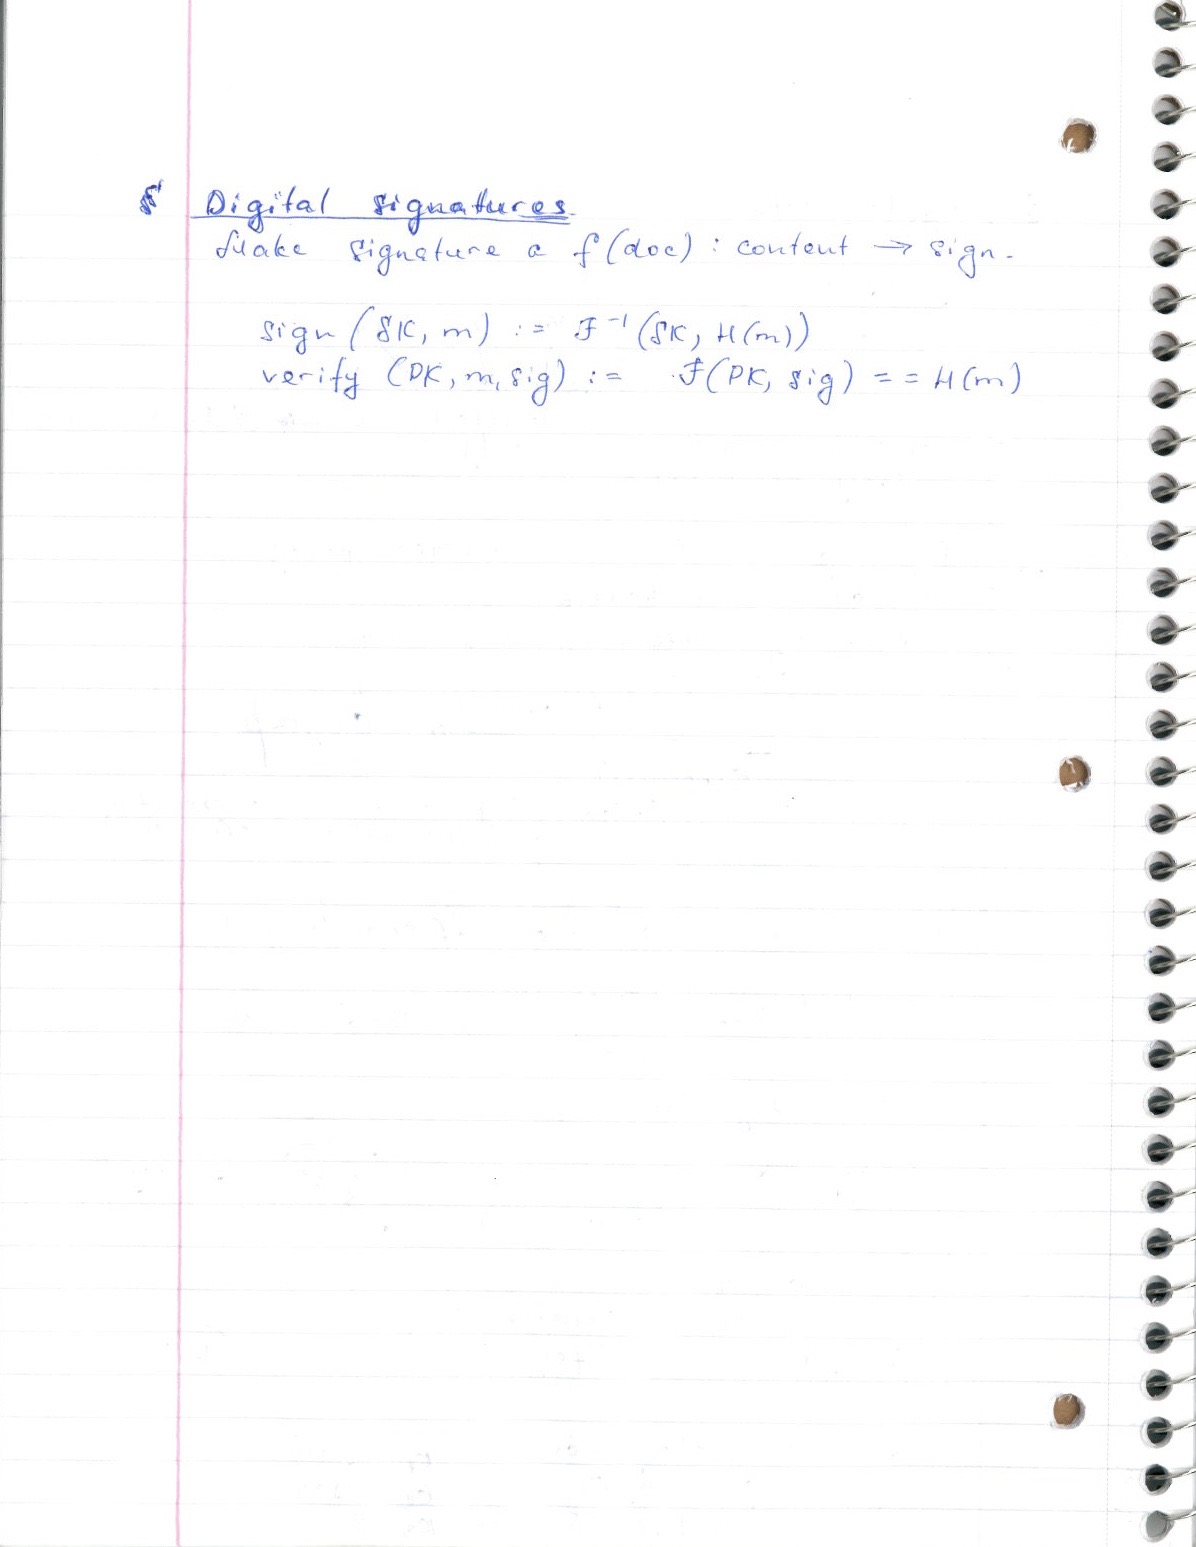 § Digital signatures
Make signature a f(doc) : content → sign.
sign (SK, m) := F⁻¹(SK, H(m))
verify (PK, m, sig) := F(PK, sig) == H(m)